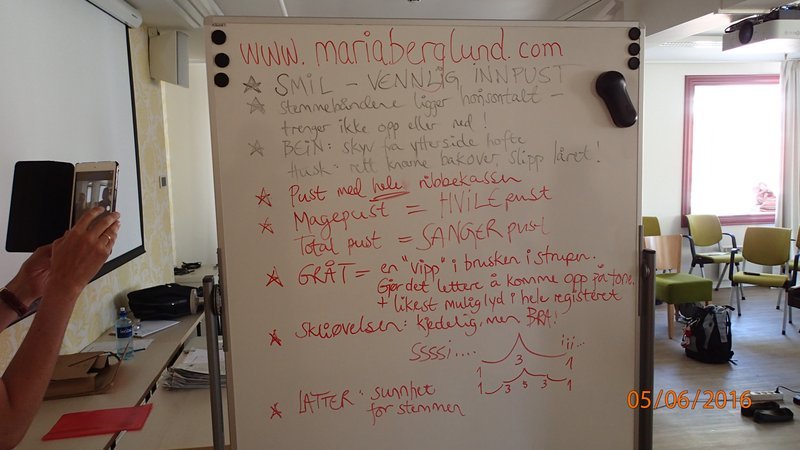 www.mariaberglund.com
☆ SMIL – VENNLIG INNPUST
☆ stemmebåndene ligger horisontalt –
trenger ikke opp eller ned!
☆ BEIN: skyv fra ytterside hofte
Husk: rett knærne bakover, slipp låret!
☆ Pust med hele ribbekassen
☆ Magepust = HVILEpust
Total pust = SANGERpust
☆ GRÅT = en "vipp" i brusken i strupen.
Gjør det lettere å komme opp på tone.
+ likest mulig lyd i hele registeret
☆ Skliøvelsen: kjedelig, men BRA!
SSSSi.... 1 3 1 iii...
1 3 5 3 1
☆ LATTER: sunnhet
for stemmen
05/06/2016